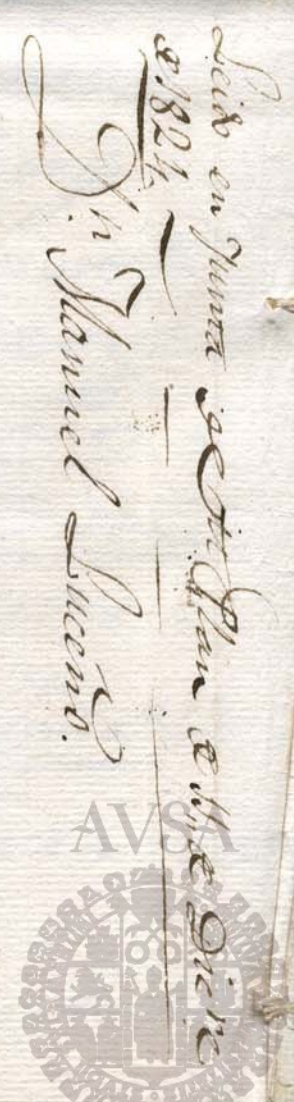 Leido en Junta de Plan de 11 de Dicre
de 1824
Dn Manuel Luceño.
AVSA